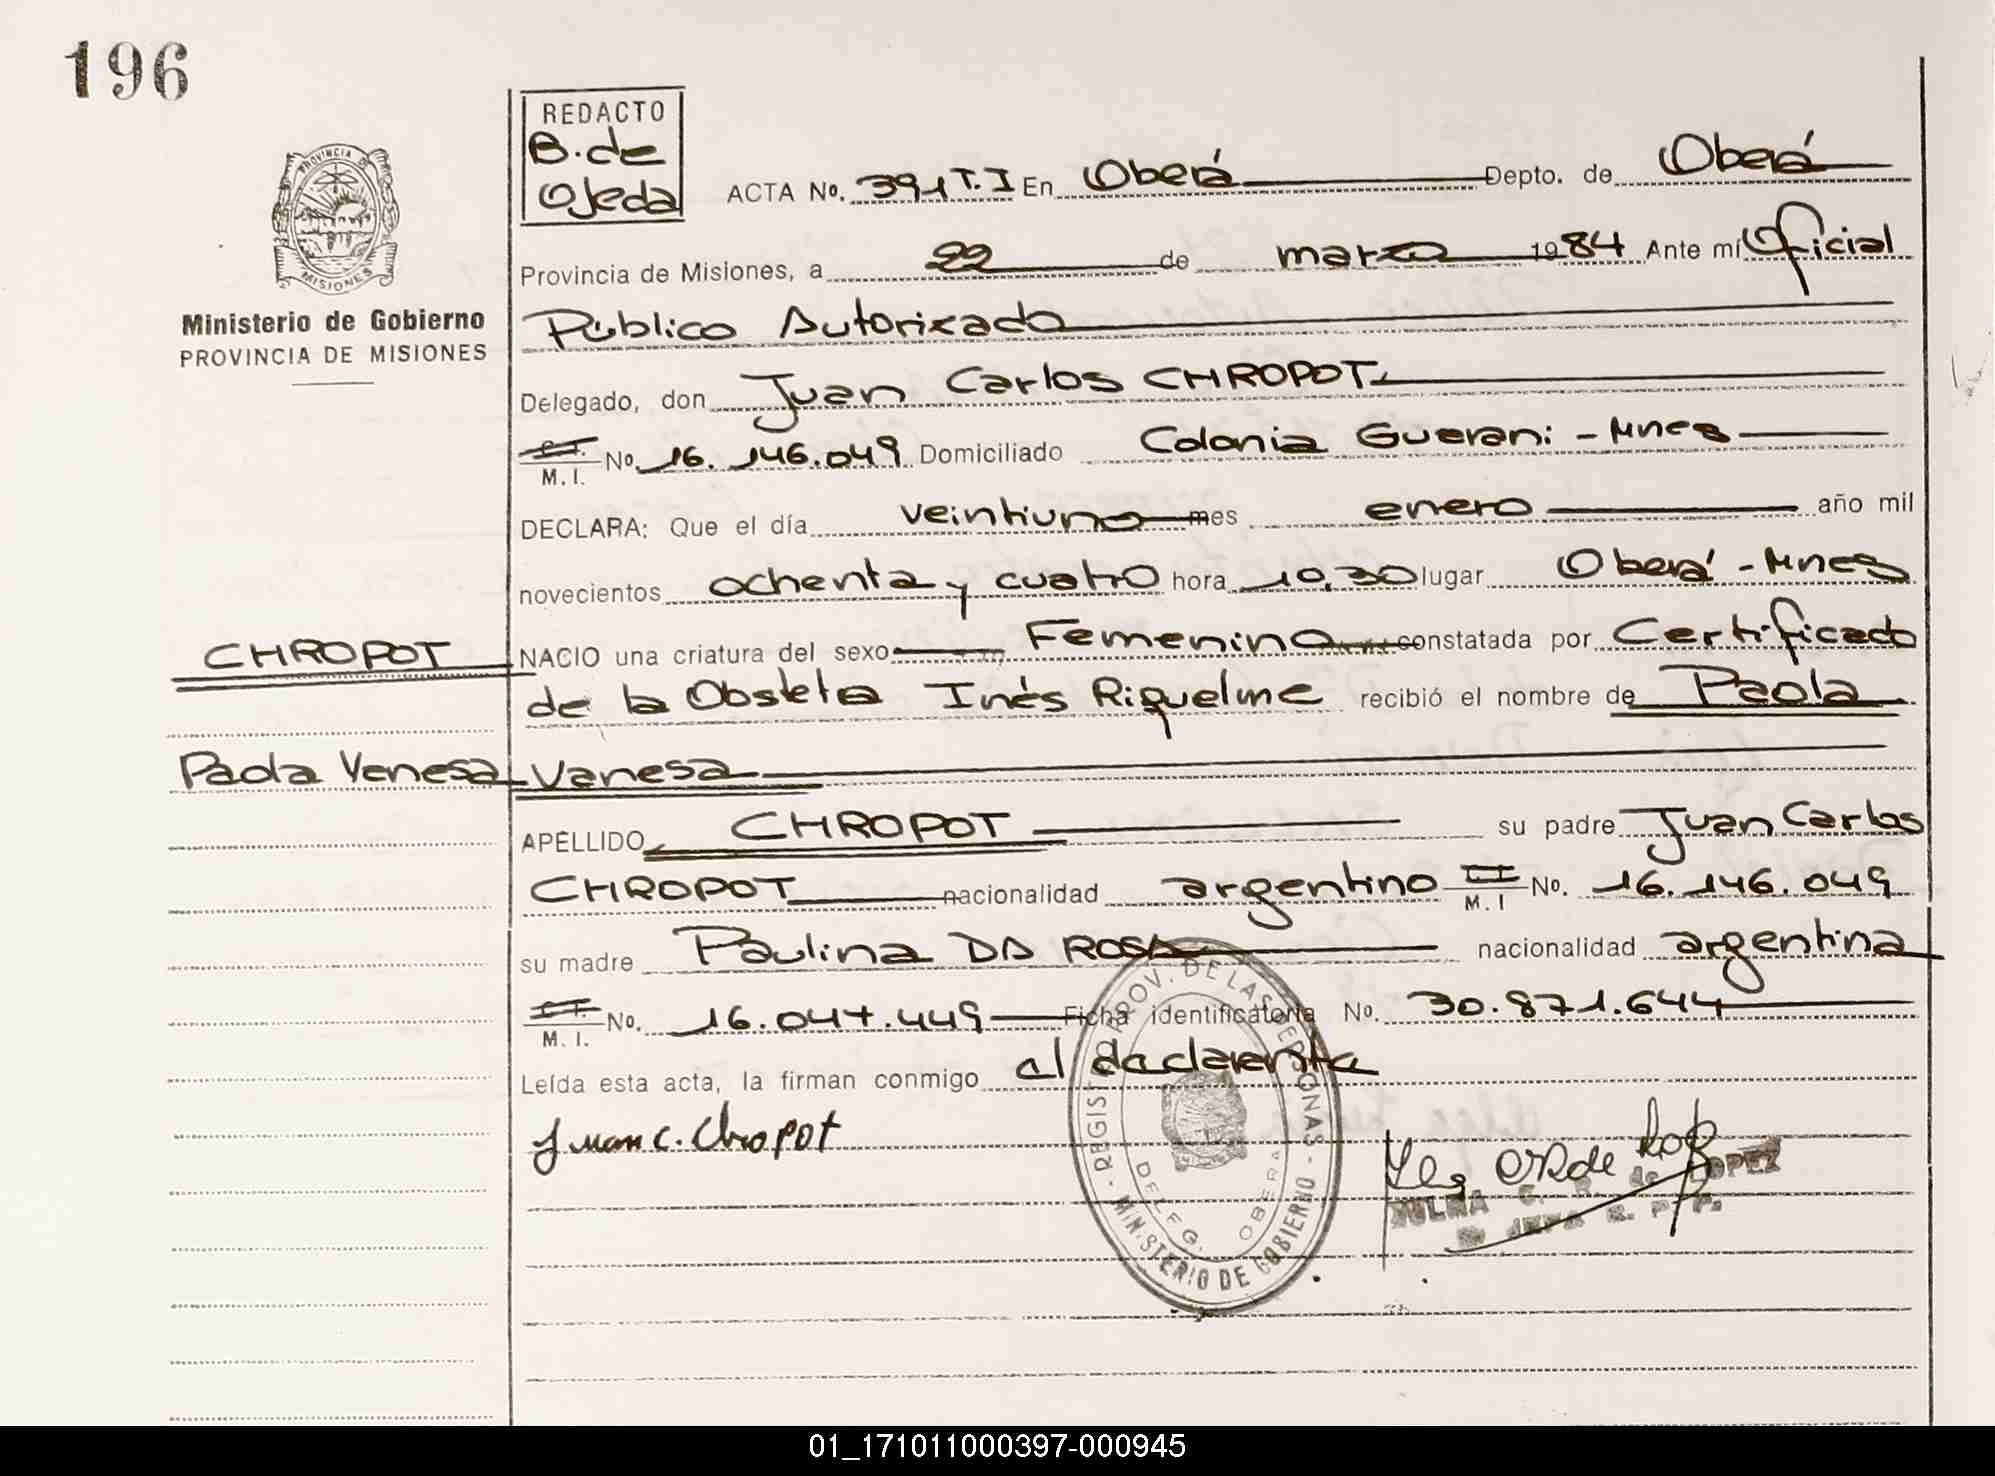 196
REDACTO
B. de
Ojeda
ACTA No. 391 T. I En Oberá Depto. de Oberá
Provincia de Misiones, a 22 de marzo 1984 Ante mí Oficial
Público Autorizado
PROVINCIA DE
MISIONES
Ministerio de Gobierno
PROVINCIA DE MISIONES
Delegado, don Juan Carlos CHROPOT
C.I.
M. I. No 16.146.049 Domiciliado Colonia Guarani - Mnes
DECLARA: Que el día veintiuno mes enero año mil
novecientos ochenta y cuatro hora 10,30 lugar Oberá - Mnes
CHROPOT
NACIO una criatura del sexo Femenino constatada por Certificado
de la Obsteta Inés Riquelme recibió el nombre de Paola
Paola Vanesa
Vanesa
APELLIDO CHROPOT su padre Juan Carlos
CHROPOT nacionalidad argentino C.I. M. I No. 16.146.049
su madre Paulina DA ROSA nacionalidad argentina
C.I.
M. I. No. 16.047.449 Ficha identificatoria No. 30.871.644
Leída esta acta, la firman conmigo el declarante
Juan C. Chropot
REGISTRO PROV. DE LAS PERSONAS - MINISTERIO DE GOBIERNO -
DELEG. OBERA
C. R. de LOPEZ
JEFA R. P. P.
01_171011000397-000945